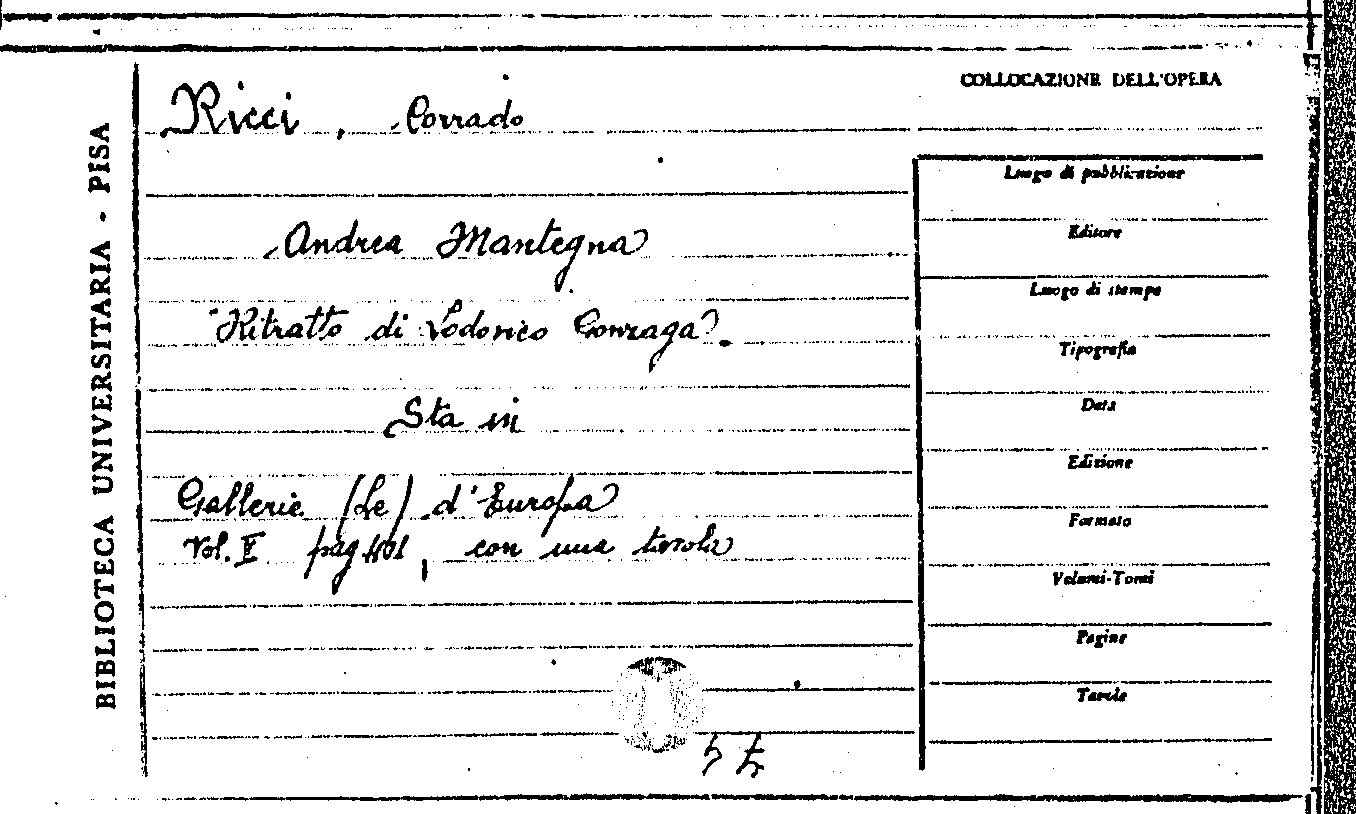 BIBLIOTECA UNIVERSITARIA - PISA
COLLOCAZIONE DELL'OPERA
Ricci, Corrado
Andrea Mantegna
"Ritratto di Lodovico Gonzaga".
Sta in
Gallerie (Le) d'Europa
Vol. II pag 401, con una tavola
Luogo di pubblicazione
Editore
Luogo di stampa
Tipografia
Data
Edizione
Formato
Volumi-Tomi
Pagine
Tavole